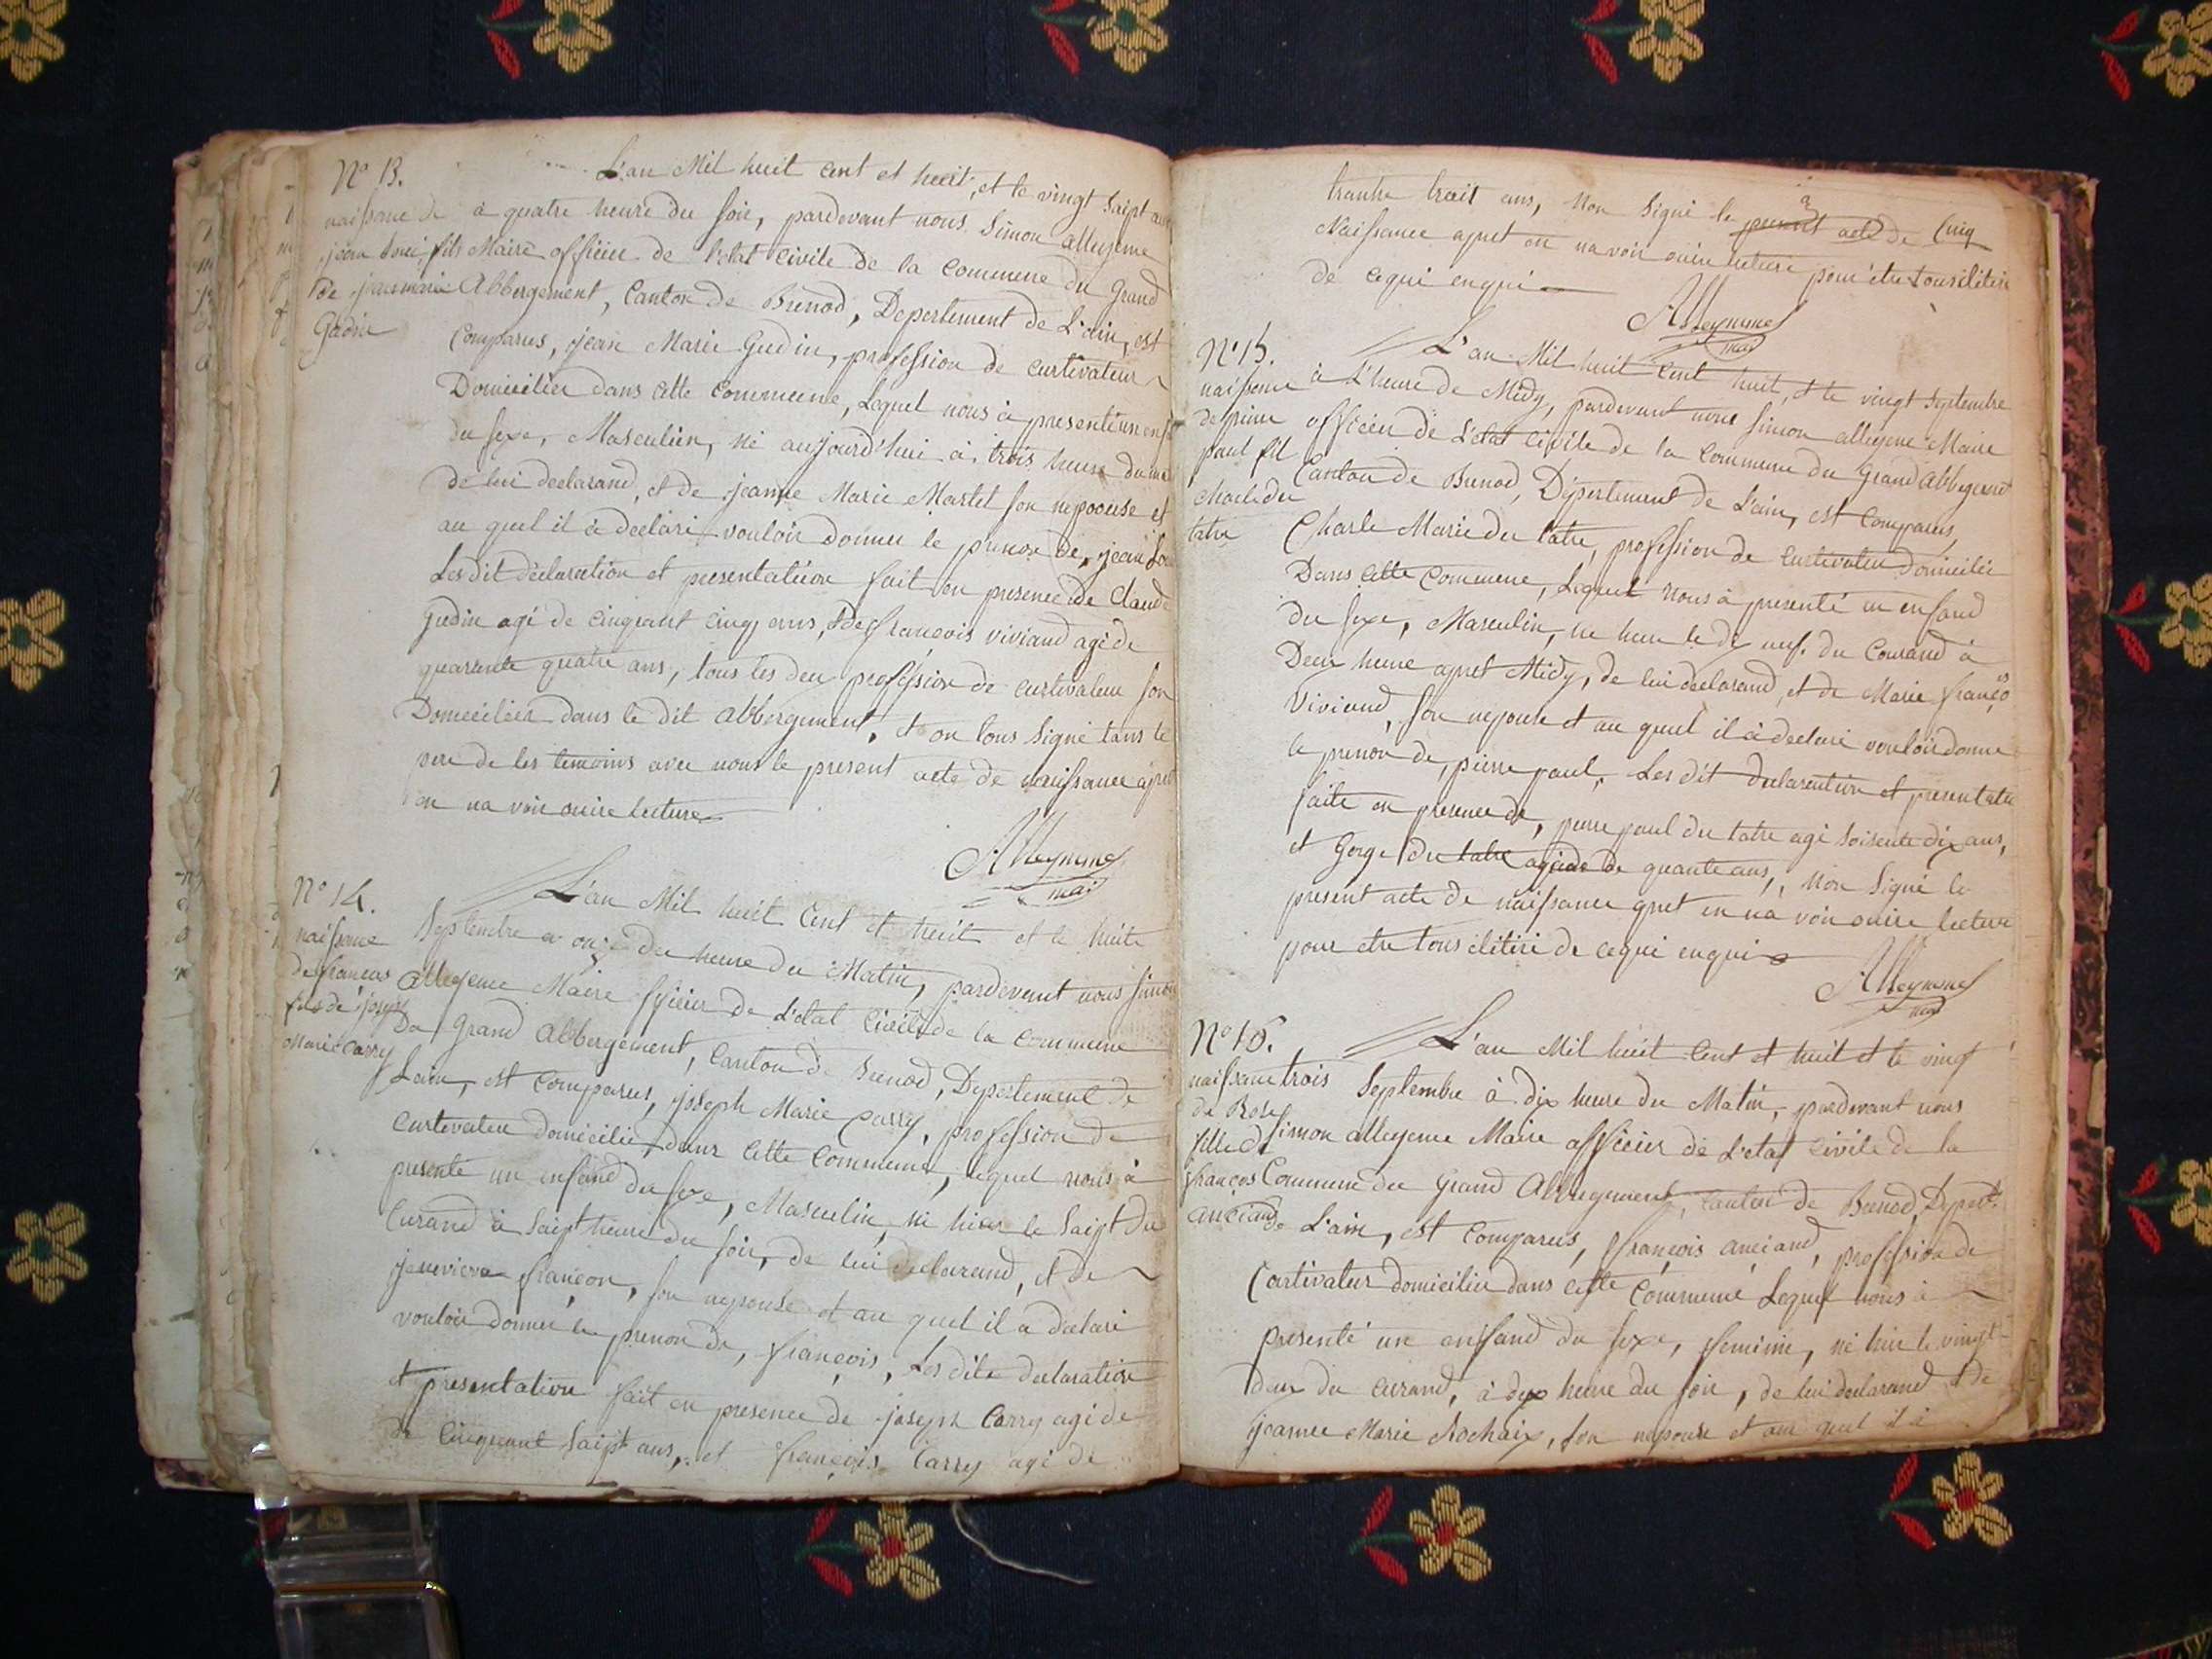 N° 13.
naissance de
jean loui fils
de jean marie
Gudin
L'an Mil huit cent et huit, et le vingt saipt
à quatre heure du soir, pardevant nous Simon alleyene
Maire officier de l'état civile de la commune du Grand
Abbergement, Canton de Brenod, Departement de L'ain, est
Comparus, jean Marie Gudin, profession de curtivateur
Domicilier dans cette commune, Lequel nous à presenté un
du sexe, Masculin, né aujourd'hui à trois heure du
de lui declarand, et de jeanne Marie Martel son nepoouse et
au quel il à declaré vouloir donner le prenon de, jean
Lesdit declaration et presentation fait en presence de Claude
Gudin agé de cinquant cinq ans, et de francois viviand agé de
quarente quatre ans, tous les deu profession de curtivateur son
Domicilier dans le dit abbergement, et on tous signé tans le
pere de les temoins avec nous le present acte de naissance apret
en na voir ouire lecture
Alleyme
mai
N° 14.
naissance
de francois
fils de joseph
Marie Carry
L'an Mil huit Cent et huit et le huite
Septembre a onze du heure du Matin, pardevant nous simon
alleyene Maire officier de L'etat Civile de la commune
Du Grand Abbergement, Canton de Brenod, Departement de
Lain, est Comparus, joseph Marie Carry, profession de
curtivateur domicilié dans cette Commune, lequel nous à
presenté un enfand du sexe, Masculin, né hier le saipt du
Curand à saipt heure du soir, de lui declarand, et de
jenevieve françon, son nepouse et au quel il a declaré
vouloir donner le prenon de, françois, Les dite declaration
et presentation fait en presence de joseph Carry agé de
de Cinquant saipt ans, et françois Carry agé de
trante trait ans, Non signé le present acte de Cinq
Naissance apret en na voir ouire lecture pour etre tous iliteré
de cequi enqui
Alleymne
mai
N° 15.
naissance
de pierre
paul fil
charle du
tatre
L'an Mil huit Cent huit, et le vingt Septembre
à L'heure de Midy, pardevant nous Simon alleyene Maire
officier de L'état Civile de la Commune du Grand Abbergement
Canton de Brenod, Département de L'ain, est Comparus,
Charle Marie du tatre, profession de curtivateur domicilié
Dans cette Commune, Lequel nous à presenté un enfand
du sexe, Masculin, né hier le dix neuf. du Courand à
Deux heure apret Midy, de lui declarand, et de Marie françois
Viviand, son nepouse et au quel il à declaré vouloir donner
le prenon de, pierre paul, Les dit declaration et presentation
faite en presence de, pierre paul du tatre agé soisente dix ans,
et Gorge du tatre agé de de quarante ans, Non signé le
present acte de naissance apret en na voir ouire lecture
pour etre tous iliteré de cequi enqui
Alleymne
mai
N° 16.
naissance
de Rose
fille de
françois
anciand
L'an Mil huit Cent et huit et le vingt
trois Septembre à dix heure du Matin, pardevant nous
Simon alleyene Maire officier de L'etat Civile de la
Commune du Grand Abbergement, Canton de Brenod, Depart.
de L'ain, est Comparus, françois anciand, profession de
Cartivateur domicilier dans cette Commune Lequel nous à
presenté un enfand du sexe, feminin, né hier le vingt
deux du curand, à dix heure du soir, de lui declarand et de
jeanne Marie Rochaix, son nepouse et au quel il à